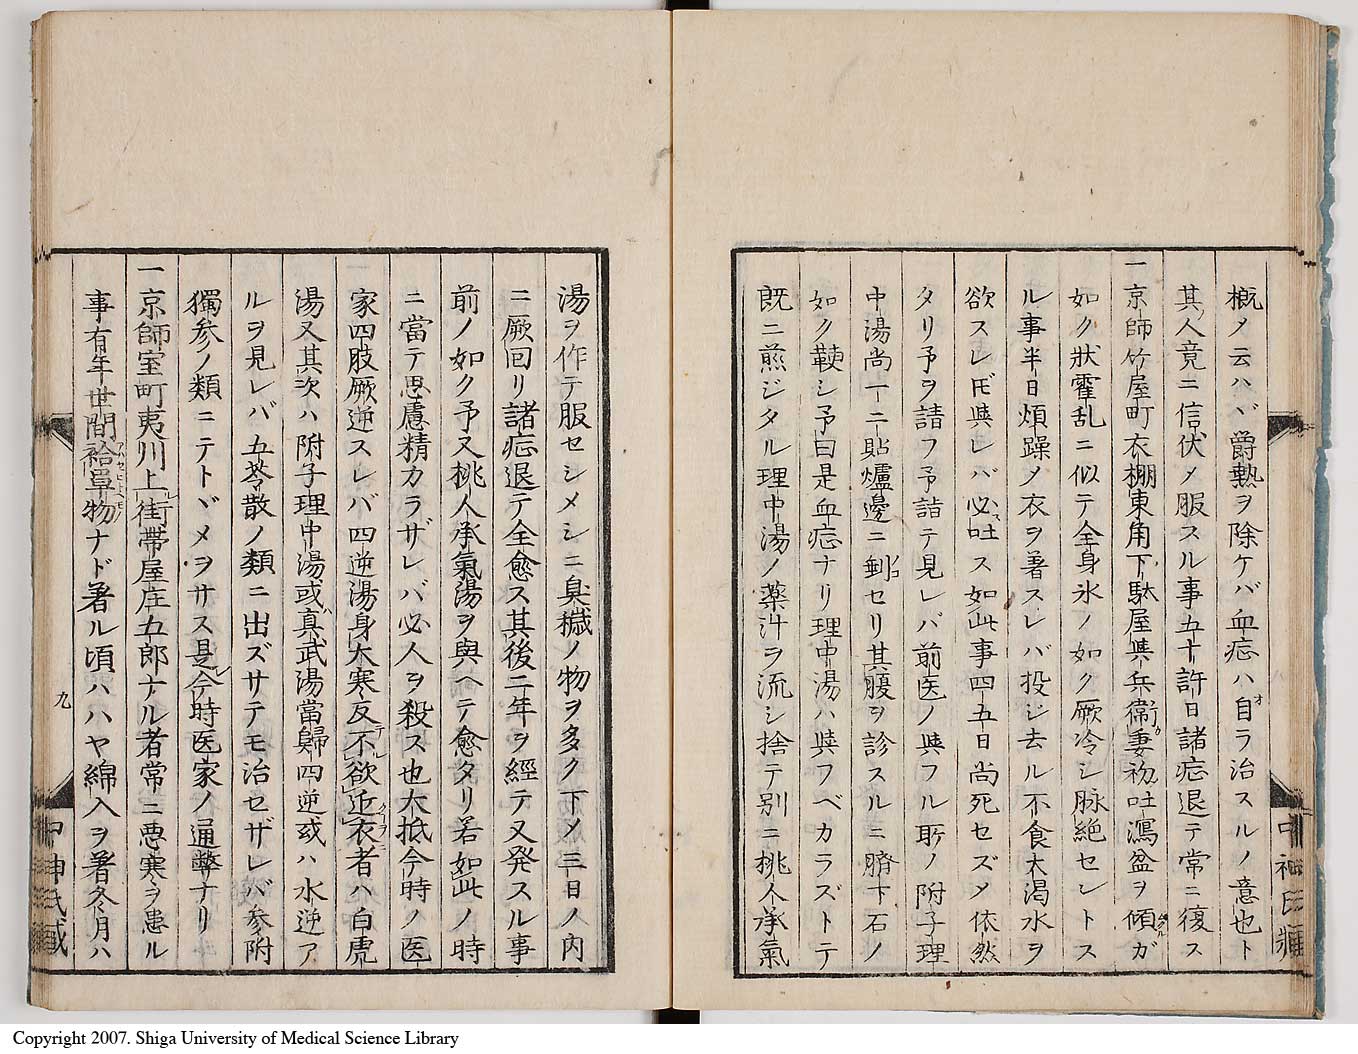 概メ云ハヾ欝熱ヲ除ケバ血症ハ自ラ治スルノ意也ト
其人竟ニ信伏メ服スル事五十許日諸症退テ常ニ復ス
一京師竹屋町衣棚東角下駄屋與兵衛妻初吐瀉盆ヲ傾ガ
如ク状霍乱ニ似テ全身氷ノ如ク厥冷シ脉絶セントス
ル事半日煩躁メ衣ヲ著スレバ投ジ去ル不食大渇水ヲ
欲スレ𪜈與レバ必吐ス如此事四五日尚死セズメ依然
タリ予ヲ請フ予詣テ見レバ前医ノ與フル所ノ附子理
中湯尚一二貼爐邊ニ剉セリ其腹ヲ診スルニ臍下石ノ
如ク鞕シ予曰是血症ナリ理中湯ハ與フベカラズトテ
既ニ煎ジタル理中湯ノ薬汁ヲ流シ捨テ別ニ桃人承氣
中神氏蔵
湯ヲ作テ服セシメシニ臭穢ノ物ヲ多ク下メ三日ノ内
ニ厥回リ諸症退テ全愈ス其後二年ヲ經テ又発スル事
前ノ如ク予又桃人承氣湯ヲ與ヘテ愈タリ若如此ノ時
ニ當テ思慮精カラザレバ必人ヲ殺ス也大抵今時ノ医
家四肢厥逆スレバ四逆湯身大寒反不欲近衣者ハ白虎
湯又其次ハ附子理中湯或真武湯當歸四逆或ハ水逆ア
ルヲ見レバ五苓散ノ類ニ出ズサテモ治セザレバ参附
獨参ノ類ニテトヾメヲサス是今時医家ノ通弊ナリ
一京師室町夷川上街帯屋庄五郎ナル者常ニ悪寒ヲ患ル
事有年世間袷單物ナド著ル頃ハハヤ綿入ヲ著冬月ハ
九
中神氏蔵
Copyright 2007. Shiga University of Medical Science Library